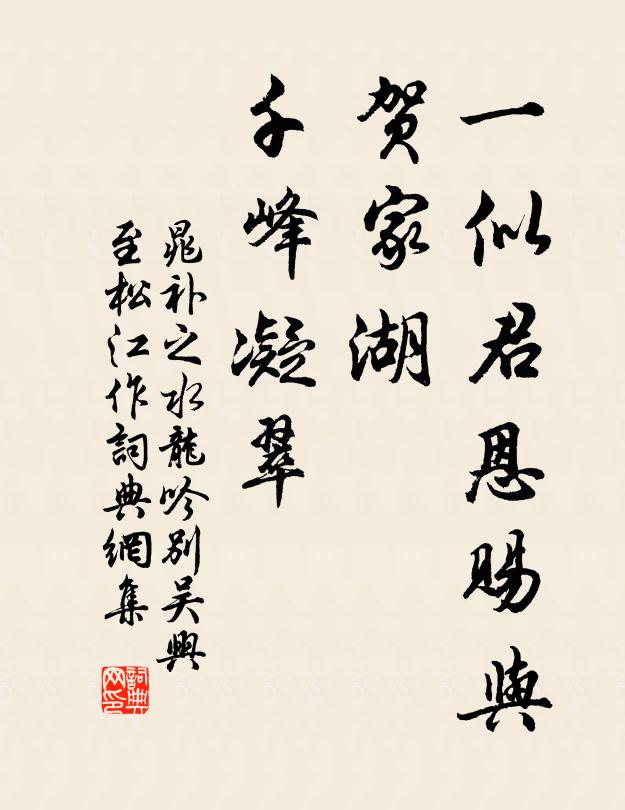 一似君恩賜與
賀家湖
千峰凝翠
晁補之水龍吟別吴興
至松江作詞典網集
詞典
网印